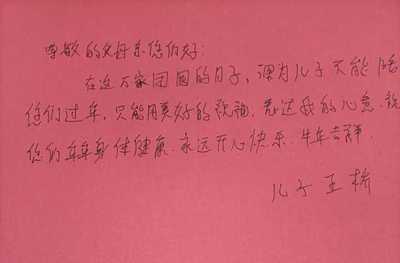 尊敬的父母亲您们好:
在这万家团圆的日子,因为儿子不能陪
您们过年,只能用美好的祝福,表达我的心意,祝
您们年年身体健康、永远开心快乐、牛年吉祥.
儿子王桥